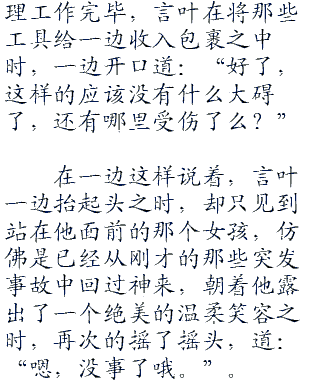 理工作完毕，言叶在将那些
工具给一边收入包裹之中
时，一边开口道：“好了，
这样的应该没有什么大碍
了，还有哪里受伤了么？”
在一边这样说着，言叶
一边抬起头之时，却只见到
站在他面前的那个女孩，仿
佛是已经从刚才的那些突发
事故中回过神来，朝着他露
出了一个绝美的温柔笑容之
时，再次的摇了摇头，道：
“嗯，没事了哦。”。